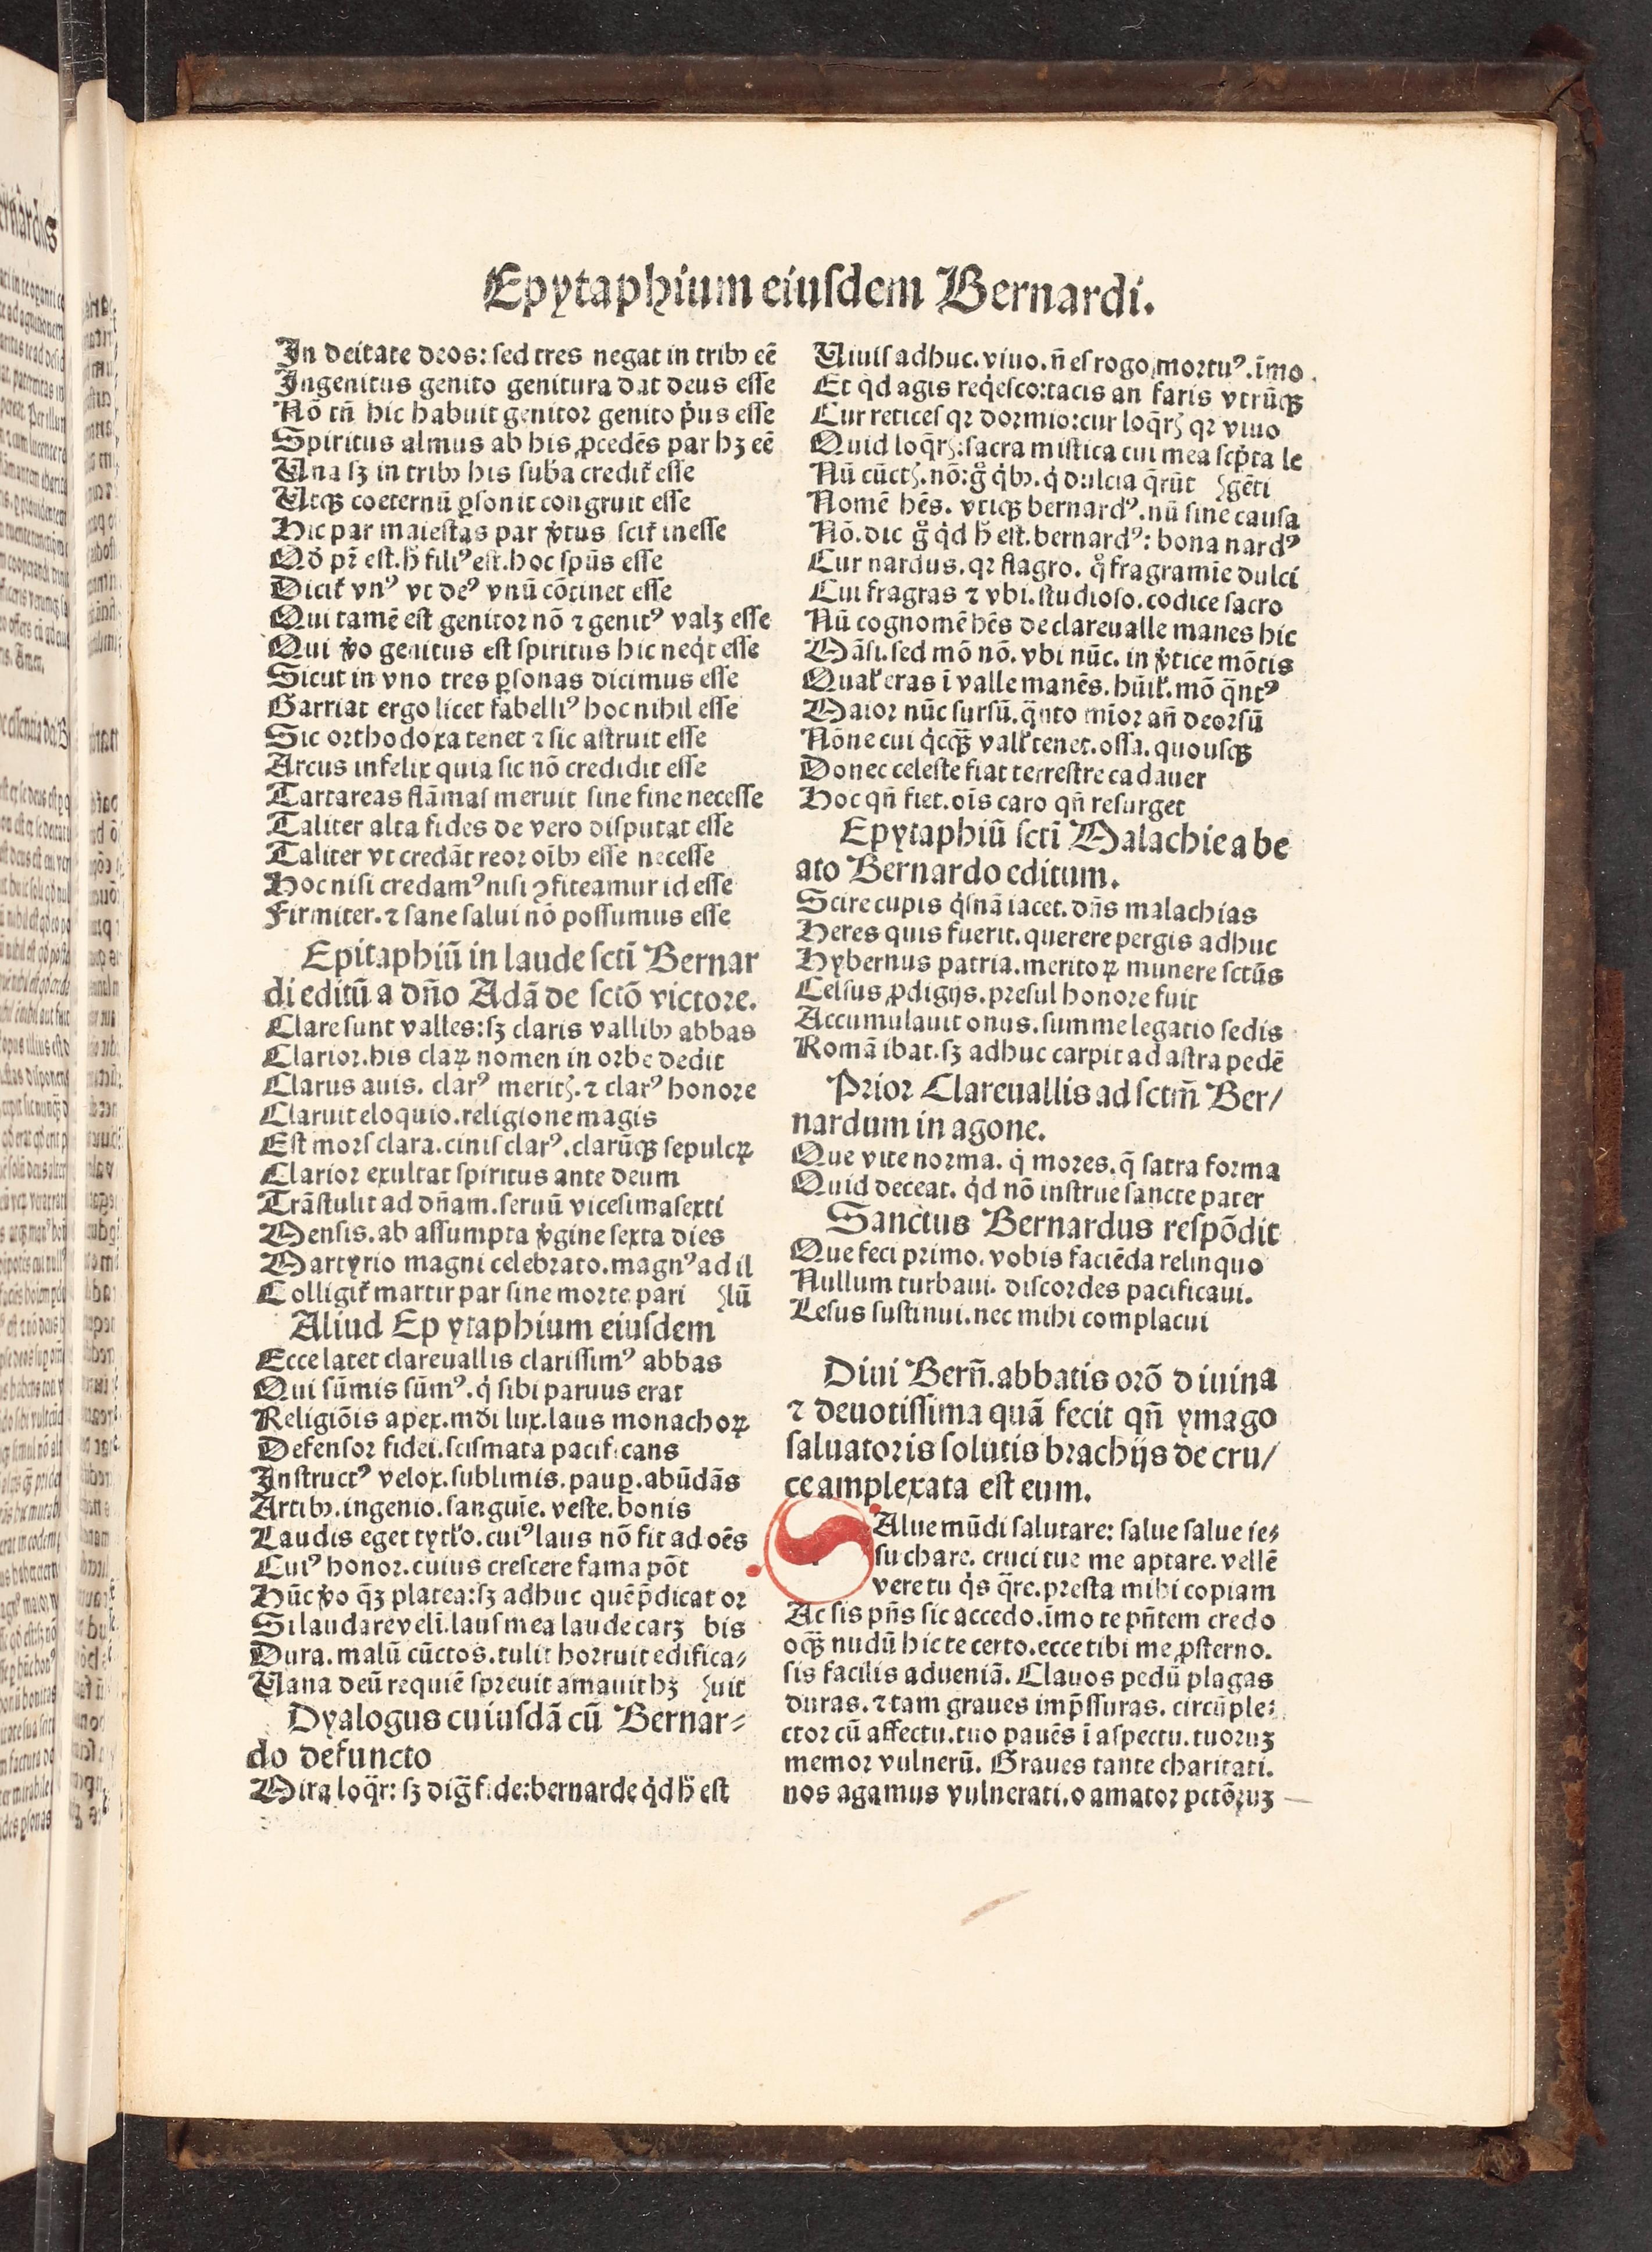 Epytaphium eiusdem Bernardi.
In deitate deos: sed tres negat in tribꝫ eē
Ingenitus genito genitura dat deus esse
Nō tñ hic habuit genitor genito p̓us esse
Spiritus almus ab his ꝓcedēs par hꝫ eē
Una sꝫ in tribꝫ his suba credit̃ esse
Utqꝫ coeternū ꝑsonit congruit esse
Hic par maiestas par v̓tus scit̃ inesse
Qd̓ pr̄ est. h̓ filiꝰ est. hoc spūs esse
Dicit̃ vnꝰ vt deꝰ vnū cōtinet esse
Qui tamē est genitor nō ⁊ genitꝰ valꝫ esse
Qui v̓o genitus est spiritus hic neqͥt esse
Sicut in vno tres ꝑsonas dicimus esse
Garriat ergo licet fabelliꝰ hoc nihil esse
Sic orthodoxa tenet ⁊ sic astruit esse
Arcus infelix quia sic nō credidit esse
Tartareas flāmas meruit sine fine necesse
Taliter alta fides de vero disputat esse
Taliter vt credāt reor oībꝫ esse necesse
Hoc nisi credamꝰ nisi ꝯfiteamur id esse
Firmiter. ⁊ sane salui nō possumus esse
Epitaphiū in laude sctī Bernar
di editū a dño Adā de sctō victore.
Clare sunt valles: sꝫ claris vallibꝫ abbas
Clarior. his claꝝ nomen in orbe dedit
Clarus auis. clarꝰ meritꝭ. ⁊ clarꝰ honore
Claruit eloquio. religione magis
Est mors clara. cinis clarꝰ. clarūqꝫ sepulcꝝ
Clarior exultat spiritus ante deum
Trāstulit ad dñam. seruū vicesimasexti
Mensis. ab assumpta v̓gine sexta dies
Martyrio magni celebrato. magnꝰ ad il
Colligit̃ martir par sine morte pari ⸾lū
Aliud Epytaphium eiusdem
Ecce latet clareuallis clarissimꝰ abbas
Qui sūmis sūmꝰ. qͥ sibi paruus erat
Religiōis apex. mdi lux. laus monachoꝝ
Defensor fidei. scismata pacificans
Instructꝰ velox. sublimis. pauꝑ. abūdās
Artibꝫ. ingenio. sanguīe. veste. bonis
Laudis eget tytl̓o. cuiꝰ laus nō fit ad oēs
Cuiꝰ honor. cuius crescere fama pōt
Hūc v̓o qꝫ platea: sꝫ adhuc quē p̄dicat or
Si laudare velī. laus mea laude carꝫ bis
Dura. malū cūctos. tulit horruit edifica⸗
Uana deū requiē spreuit amauit hꝫ ⸾uit
Dyalogus cuiusdā cū Bernar⸗
do defuncto
Mira loq̄r: sꝫ dig̃ fide: bernarde qͥd h̓ est
Uiuis adhuc. viuo. ñ es rogo mortuꝰ. īmo
Et qͥd agis reqͥesco: tacis an faris vtrūqꝫ
Cur retices qꝛ dormio: cur loq̄rꝭ qꝛ viuo
Quid loq̄rꝭ: sacra mistica cui mea scp̄ta le
Nū cūctꝭ. nō: gͦ qͥbꝫ. qͥ dulcia q̄rūt ⸾gēti
Nomē hēs. vtiqꝫ bernardꝰ. nū sine causa
Nō. dic gͦ qͥd h̓ est. bernardꝰ: bona nardꝰ
Cur nardus. qꝛ flagro. qͦ fragramīe dulci
Cui fragras ⁊ vbi. studioso. codice sacro
Nū cognomē hēs de clareualle manes hic
Māsi. sed mō nō. vbi nūc. in v̓tice mōtis
Qual̓ eras ī valle manēs. hūil̓. mō q̄ntꝰ
Maior nūc sursū. q̄nto mīor añ deorsū
Nōne cui qͥcqꝫ vall̓ tenet. ossa. quousqꝫ
Donec celeste fiat terrestre cadauer
Hoc qñ fiet. oīs caro qñ resurget
Epytaphiū sctī Malachie a be
ato Bernardo editum.
Scire cupis qͥsnā iacet. dñs malachias
Heres quis fuerit. querere pergis adhuc
Hybernus patria. meritoꝝ munere sctūs
Celsus ꝓdigijs. presul honore fuit
Accumulauit onus. summe legatio sedis
Romā ibat. sꝫ adhuc carpit ad astra pedē
Prior Clareuallis ad sctm̄ Ber/
nardum in agone.
Que vite norma. qͥ mores. q̄ satra forma
Quid deceat. qͥd nō instrue sancte pater
Sanctus Bernardus respōdit
Que feci primo. vobis faciēda relinquo
Nullum turbaui. discordes pacificaui.
Lesus sustinui. nec mihi complacui
Diui Berñ. abbatis orō diuina
⁊ deuotissima quā fecit qñ ymago
saluatoris solutis brachijs de cru/
ce amplexata est eum.
SAlue mūdi salutare: salue salue ie⸗
su chare. cruci tue me aptare. vellē
vere tu qͥs q̄re. presta mihi copiam
Ac sis pñs sic accedo. īmo te pñtem credo
oqꝫ nudū hic te certo. ecce tibi me ꝓsterno.
sis facilis ad veniā. Clauos pedū plagas
duras. ⁊ tam graues imp̄ssuras. circūple⸗
ctor cū affectu. tuo pauēs ī aspectu. tuoruꝫ
memor vulnerū. Graues tante charitati.
nos agamus vulnerati. o amator pctōꝝuꝫ